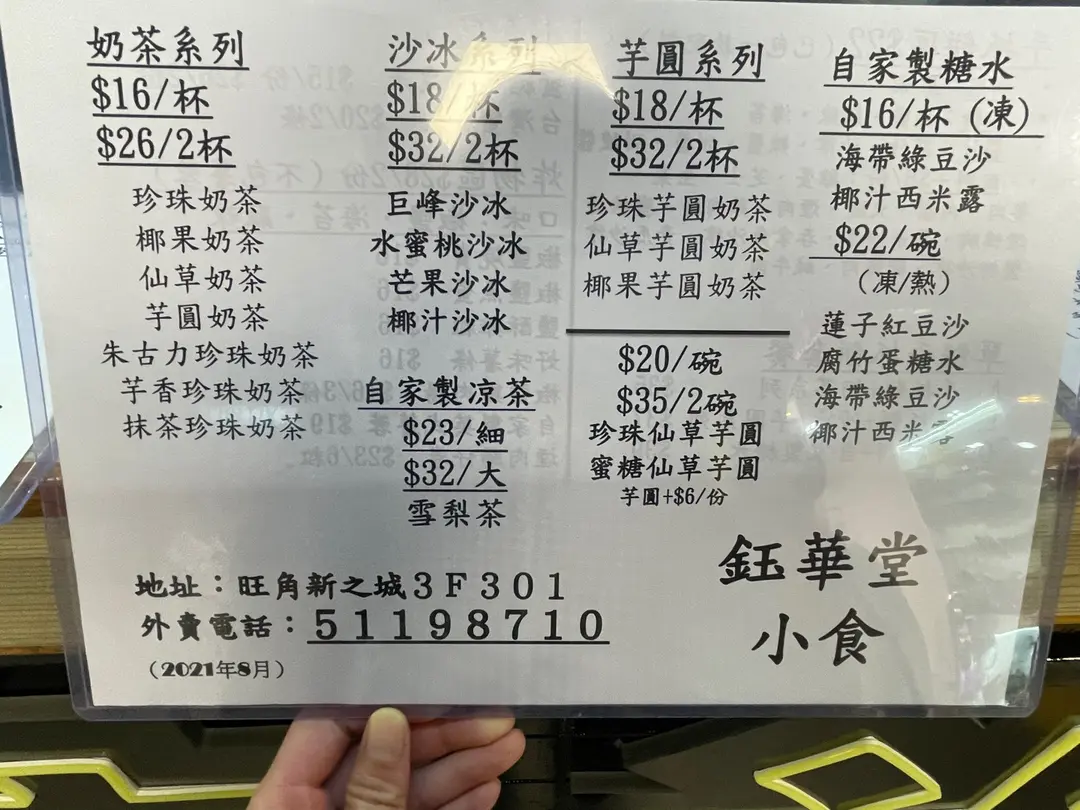 奶茶系列
$16/杯
$26/2杯
珍珠奶茶
椰果奶茶
仙草奶茶
芋圓奶茶
朱古力珍珠奶茶
芋香珍珠奶茶
抹茶珍珠奶茶
沙冰系列
$18/杯
$32/2杯
巨峰沙冰
水蜜桃沙冰
芒果沙冰
椰汁沙冰
自家製凉茶
$23/細
$32/大
雪梨茶
芋圓系列
$18/杯
$32/2杯
珍珠芋圓奶茶
仙草芋圓奶茶
椰果芋圓奶茶
$20/碗
$35/2碗
珍珠仙草芋圓
蜜糖仙草芋圓
芋圓+$6/份
自家製糖水
$16/杯（凍）
海帶綠豆沙
椰汁西米露
$22/碗
（凍/熱）
蓮子紅豆沙
腐竹蛋糖水
海帶綠豆沙
椰汁西米露
地址：旺角新之城3F301
外賣電話：51198710
（2021年8月）
鈺華堂
小食